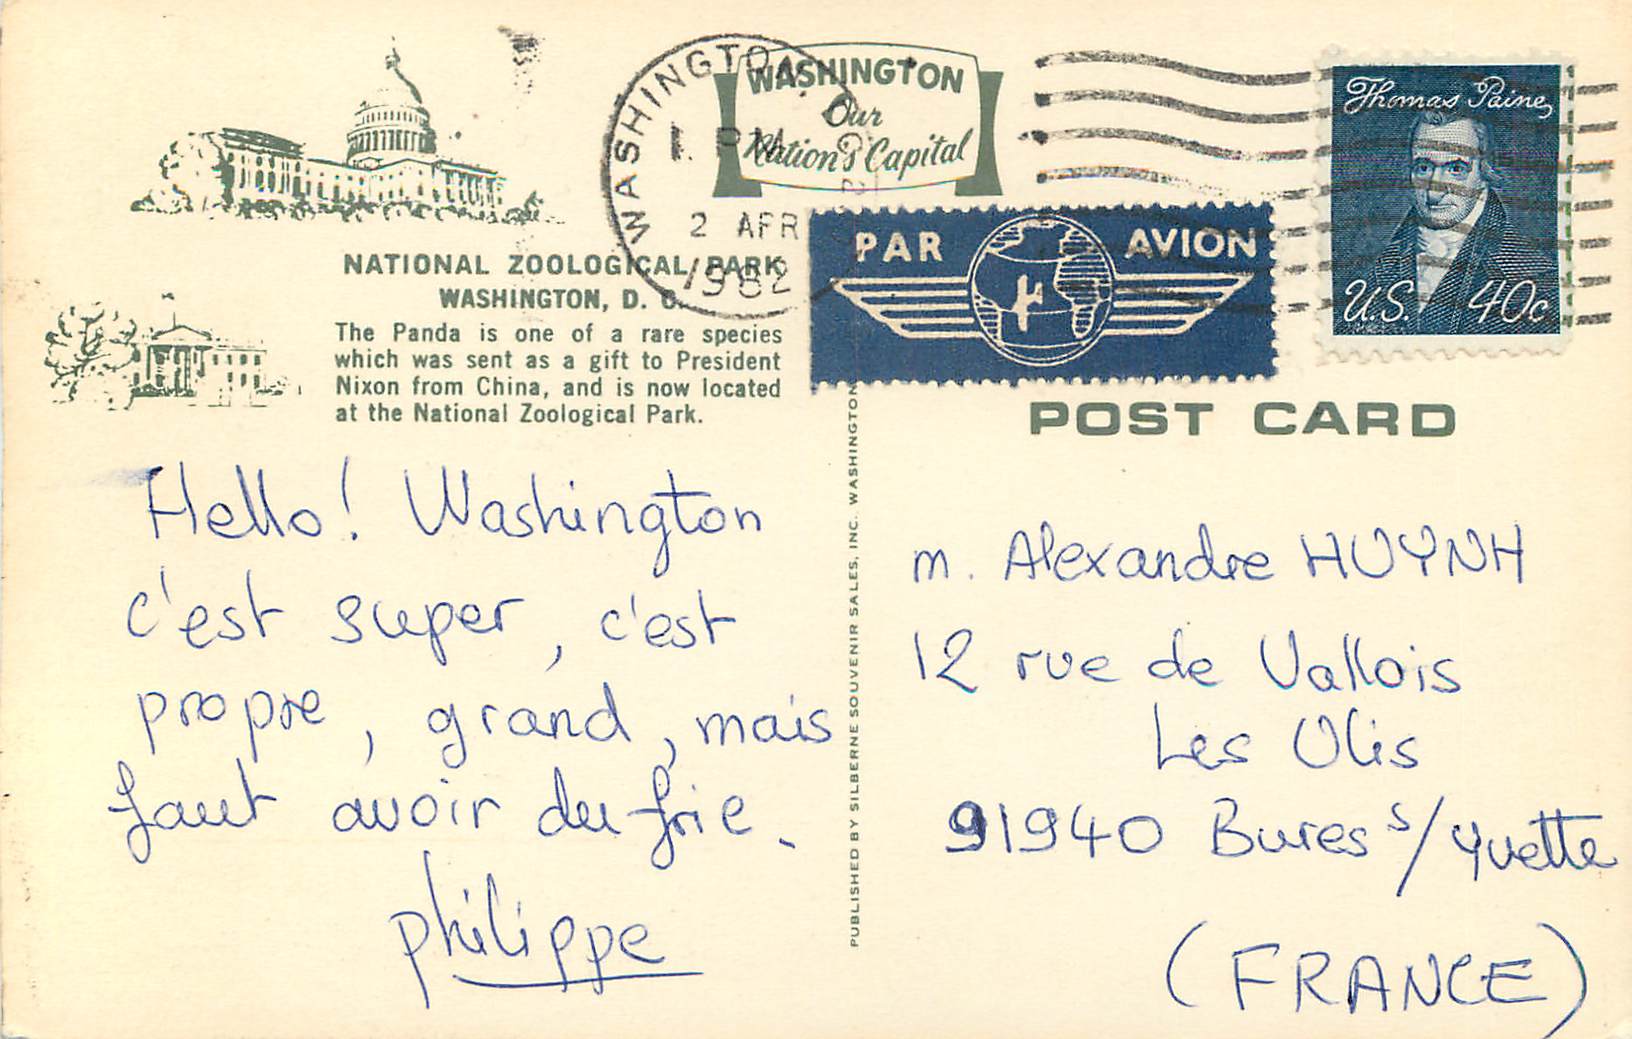 WASHINGTON
Our
Nation's Capital
WASHINGTON,
PM
2 APR
1982
Thomas Paine
U.S. 40c
PAR AVION
NATIONAL ZOOLOGICAL PARK
WASHINGTON, D. C.
The Panda is one of a rare species
which was sent as a gift to President
Nixon from China, and is now located
at the National Zoological Park.
POST CARD
Hello! Washington
c'est super, c'est
propre, grand, mais
faut avoir du fric.
philippe
PUBLISHED BY SILBERNE SOUVENIR SALES, INC. WASHINGTON
m. Alexandre HUYNH
12 rue de Vallois
Les Ulis
91940 Bures s/yvette
(FRANCE)